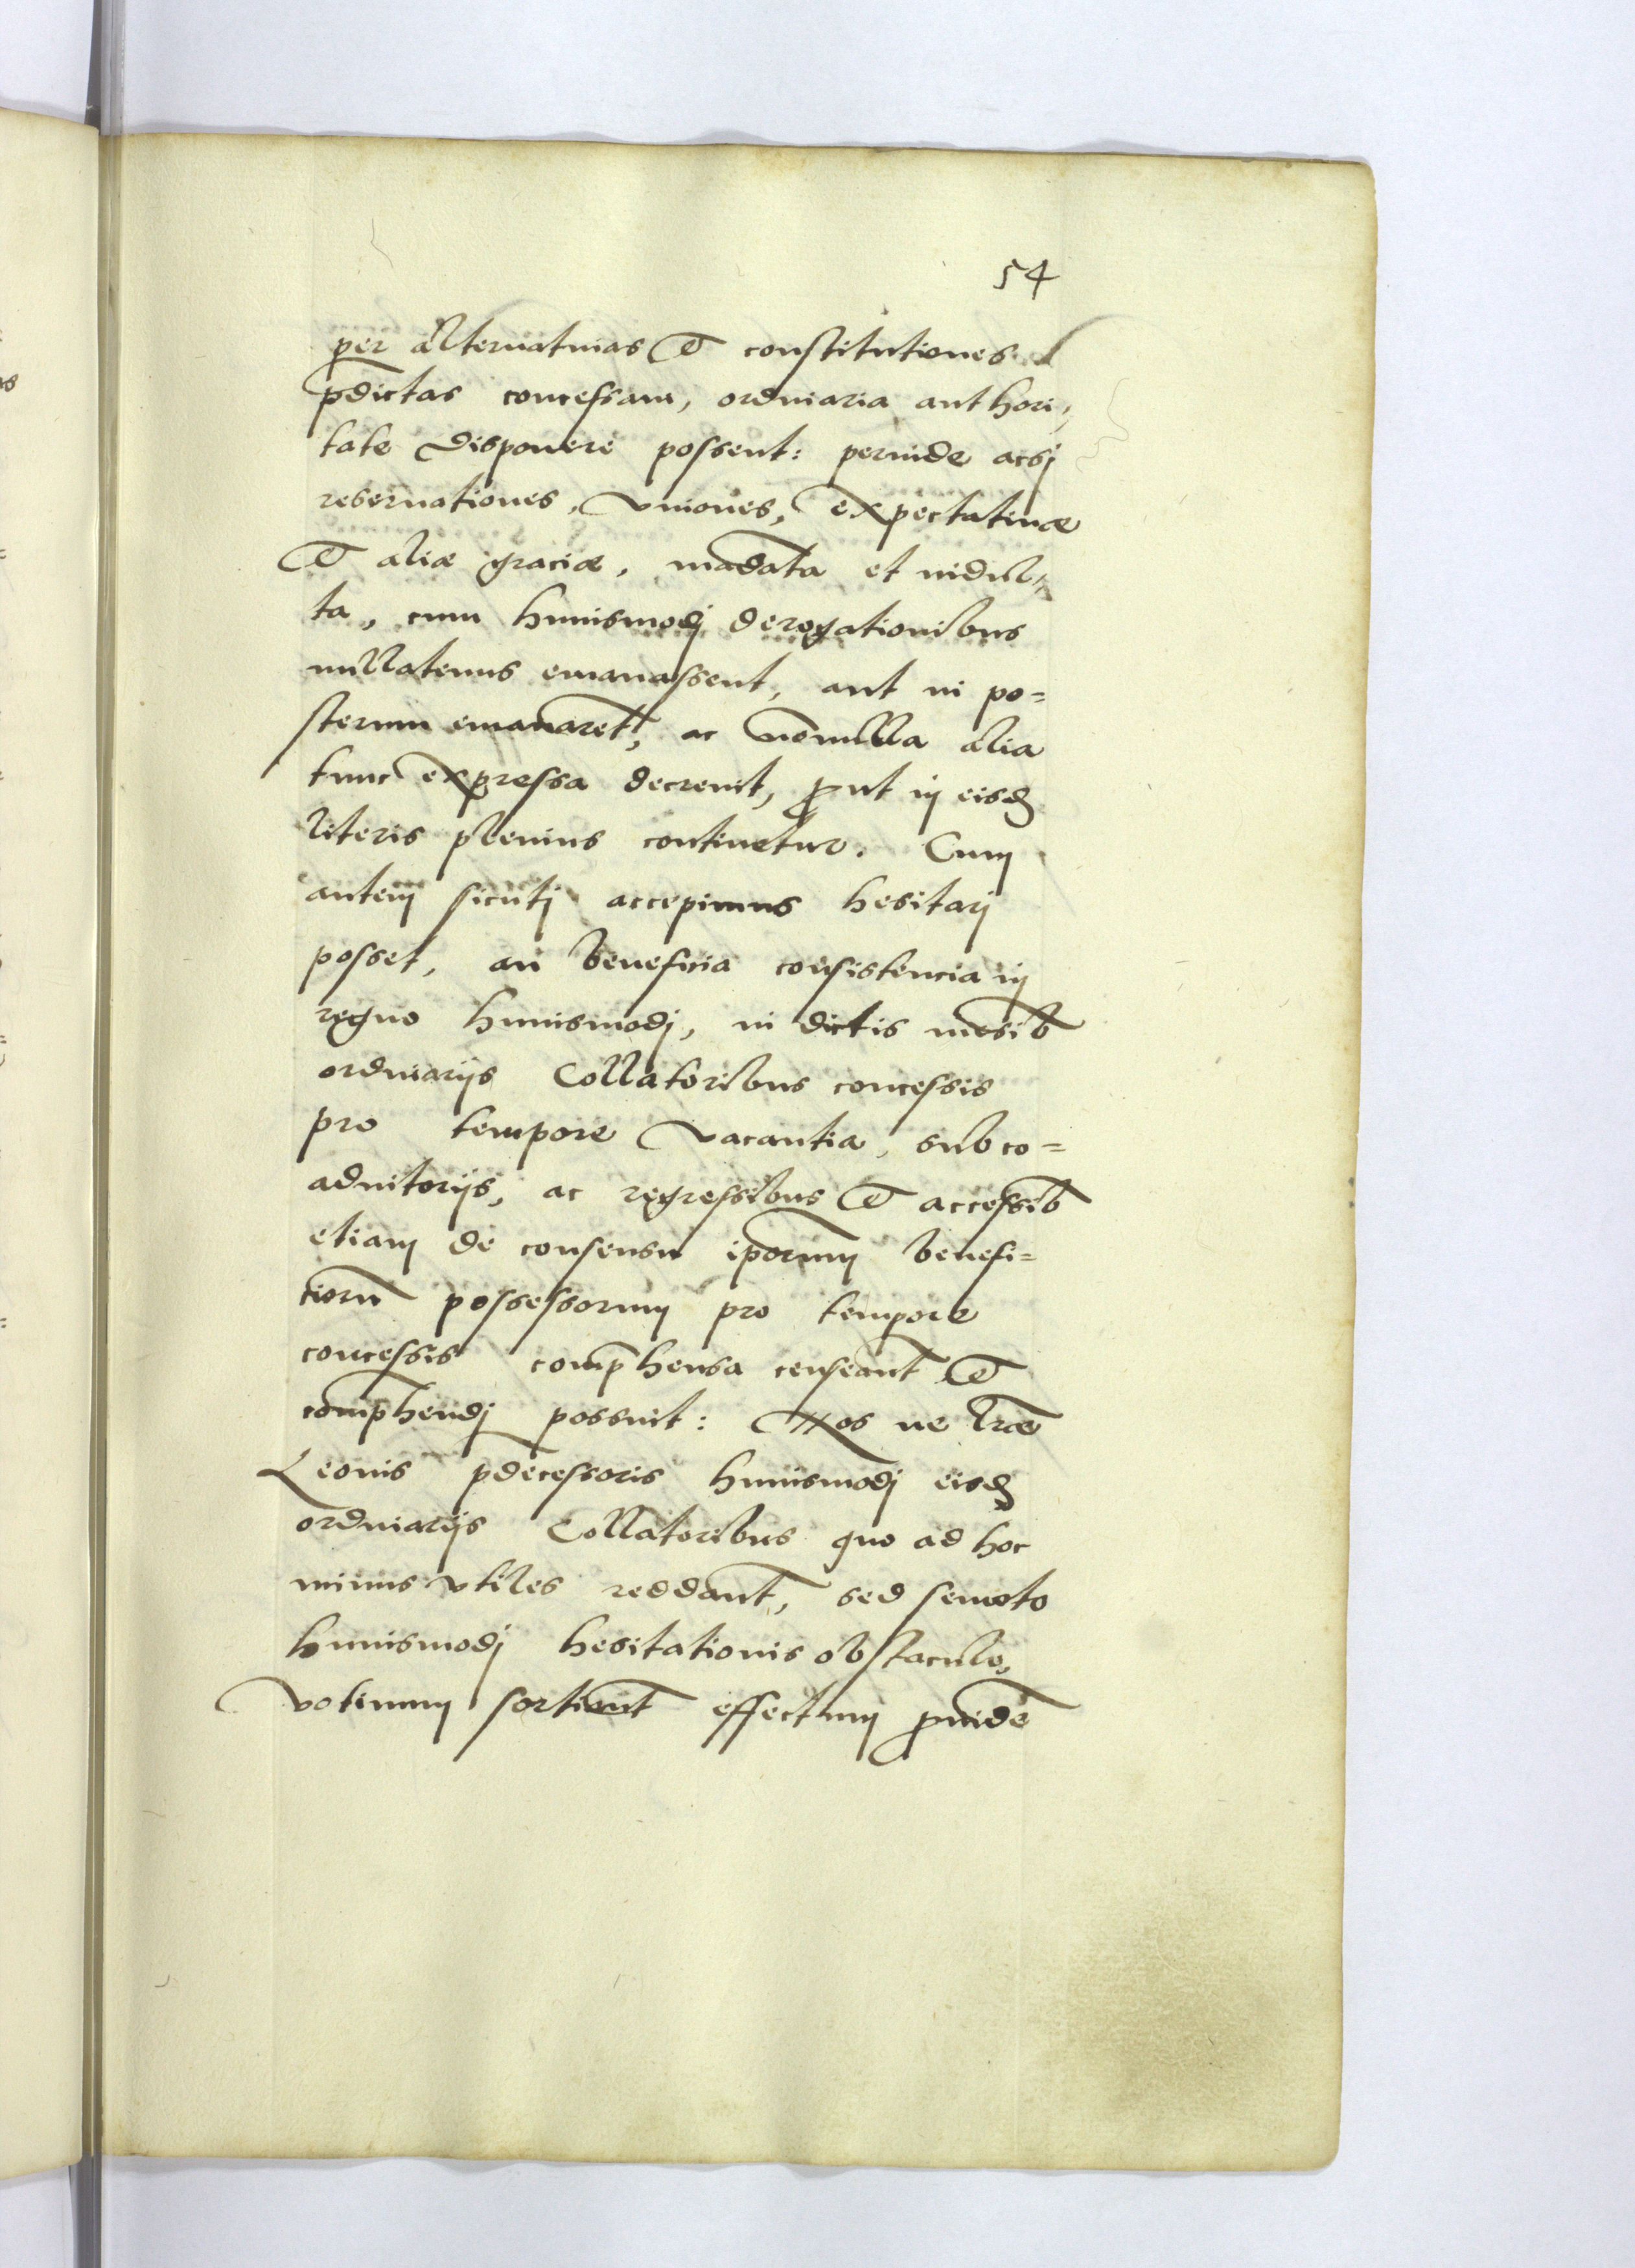 54
per alternatiuas et constitutiones
p̄dictas concessam, ordinaria authori,
tate disponere possent: perinde acsj
reseruationes, vniones, expectatiuæ
et aliæ graciæ, mādata et indul=
ta, cum huiusmodj derogationibus
nullatenus emanassent, aut in po=
sterum emanarēt, ac nōnulla alia
tunc expressa decreuit, ꝓut in eisd
literis plenius continetur. Cum
autem sicutj accepimus hesitarj
posset, an beneficia consistencia in
regno huiusmodj, in dictis mēsib
ordinarijs Collatoribus concessis
pro tempore vacantia, sub co=
adiutorijs, ac regressibus et accessib
etiam de consensu ip̄orum benefi=
tiorū possessorum pro tempore
concessis comp̄hensa censeant̄ et
comp̄hendj possint: Nos ne lr̄æ
Leonis p̄decessoris huiusmodj eisd
ordinarijs Collatoribus quo ad hoc
minus vtiles reddant̄, sed semoto
huiusmodj hesitationis obstaculo,
votiuum sortiant̄ effectum ꝓuidē